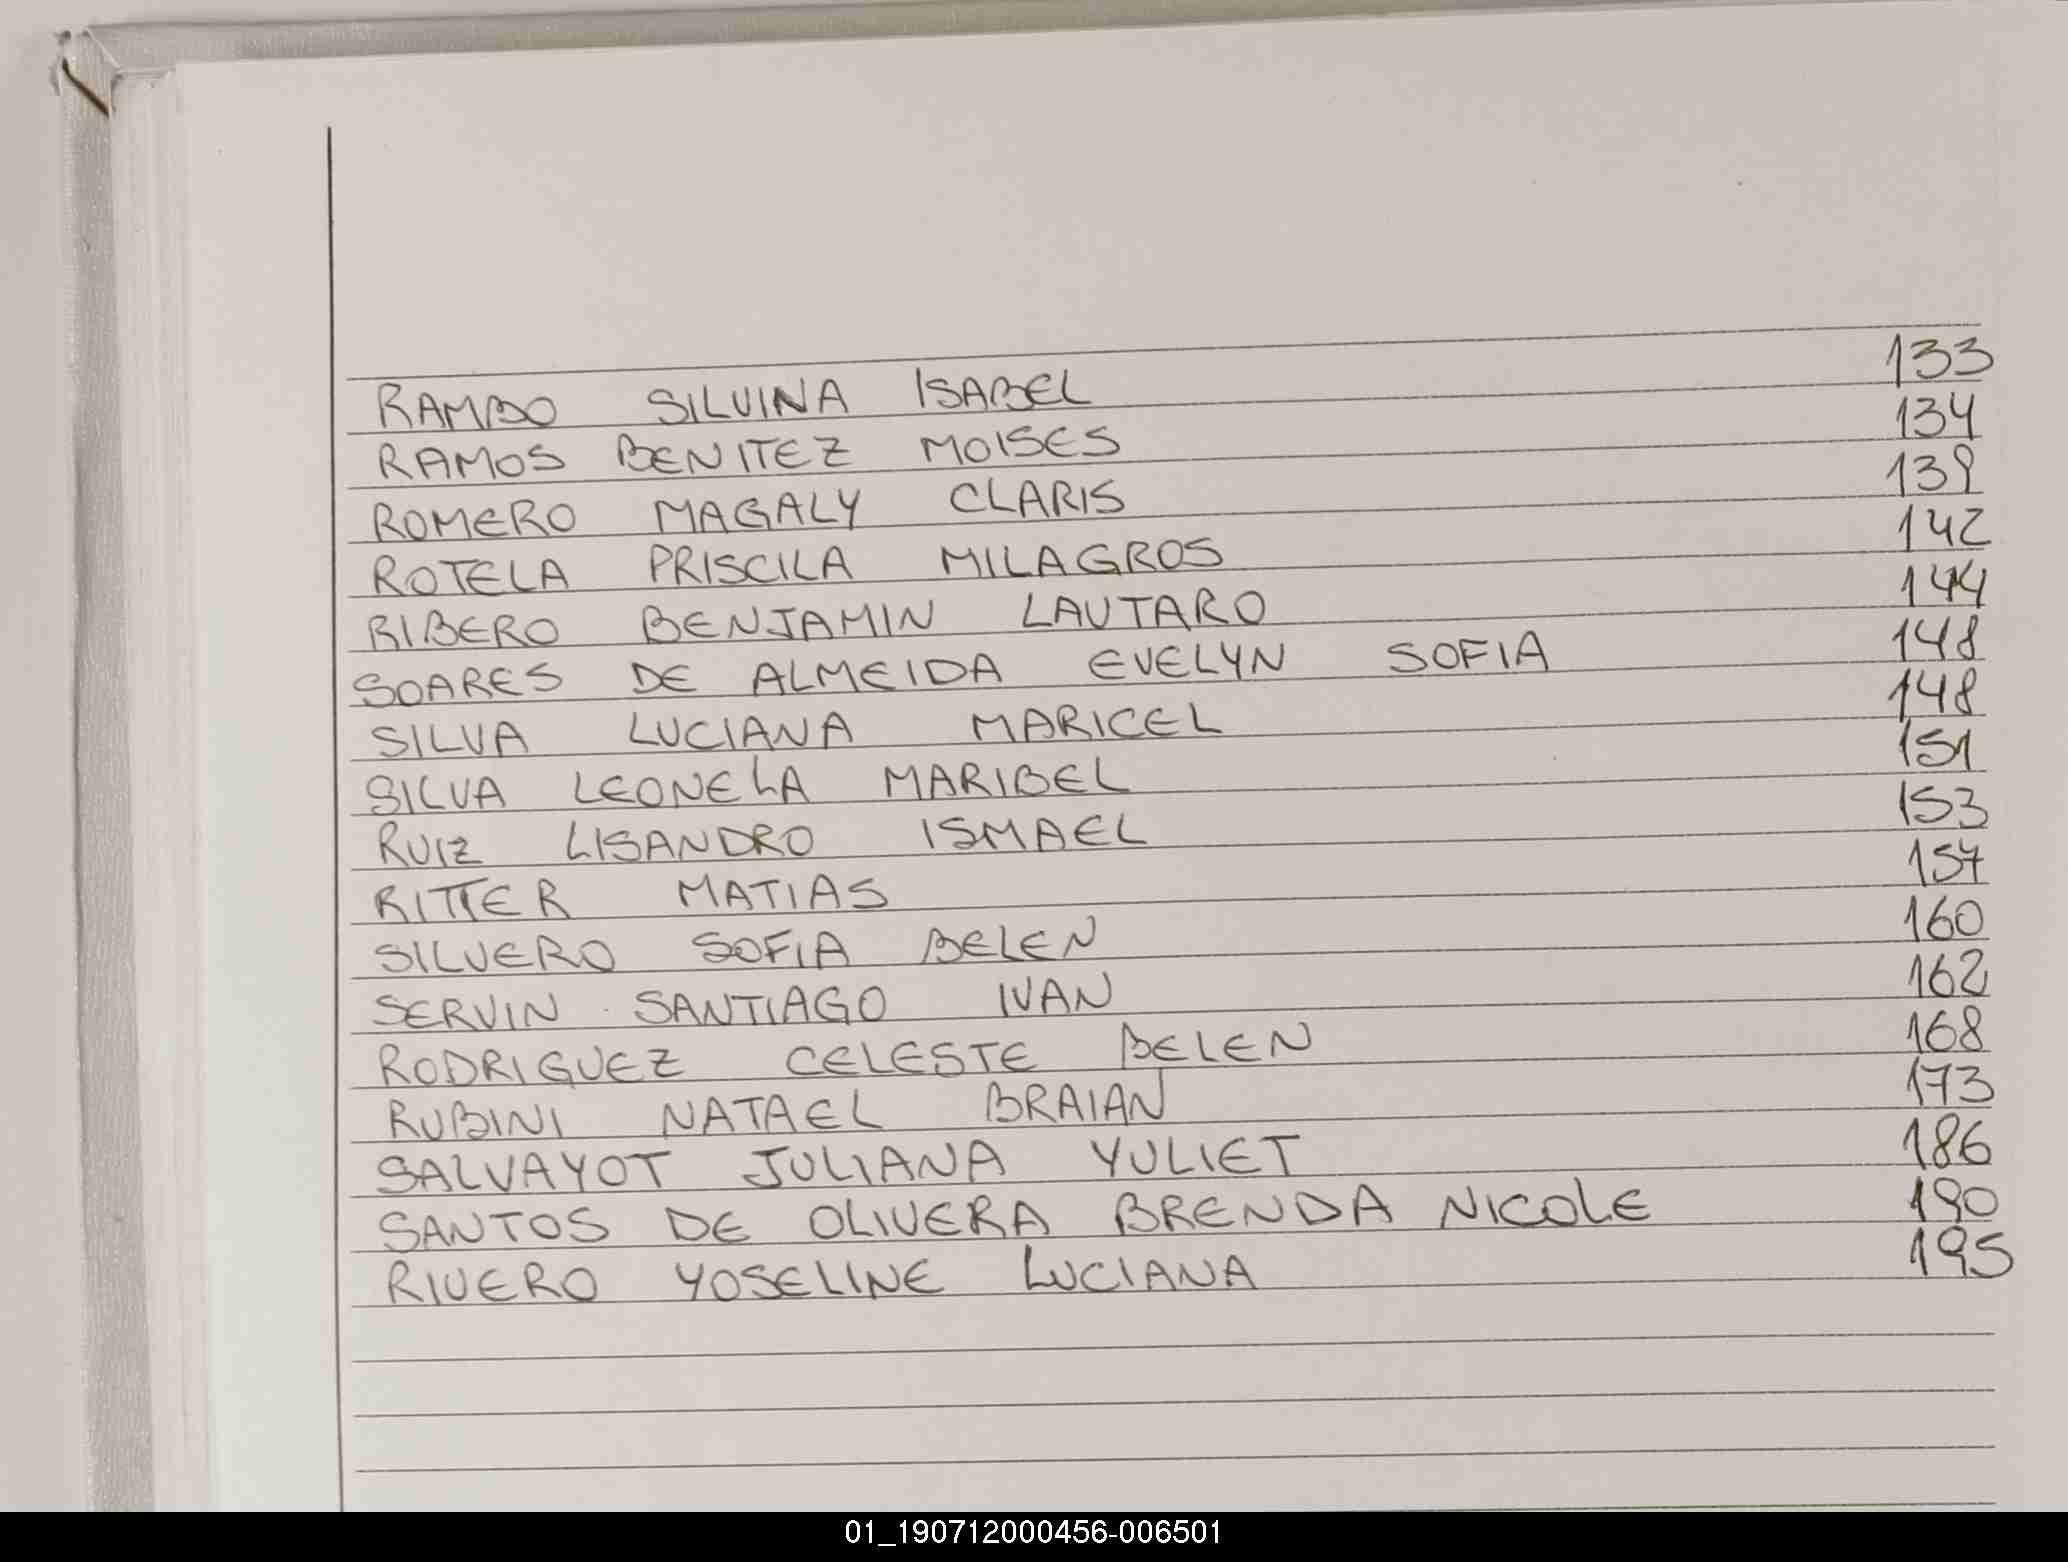 RAMBO SILVINA ISABEL 133
RAMOS BENITEZ MOISES 134
ROMERO MAGALY CLARIS 139
ROTELA PRISCILA MILAGROS 142
RIBERO BENJAMIN LAUTARO 144
SOARES DE ALMEIDA EVELYN SOFIA 148
SILVA LUCIANA MARICEL 148
SILVA LEONELA MARIBEL 151
RUIZ LISANDRO ISMAEL 153
RITTER MATIAS 157
SILVERO SOFIA BELEN 160
SERVIN SANTIAGO IVAN 162
RODRIGUEZ CELESTE BELEN 168
RUBINI NATAEL BRAIAN 173
SALVAYOT JULIANA YULIET 186
SANTOS DE OLIVERA BRENDA NICOLE 190
RIVERO YOSELINE LUCIANA 195
01_190712000456-006501